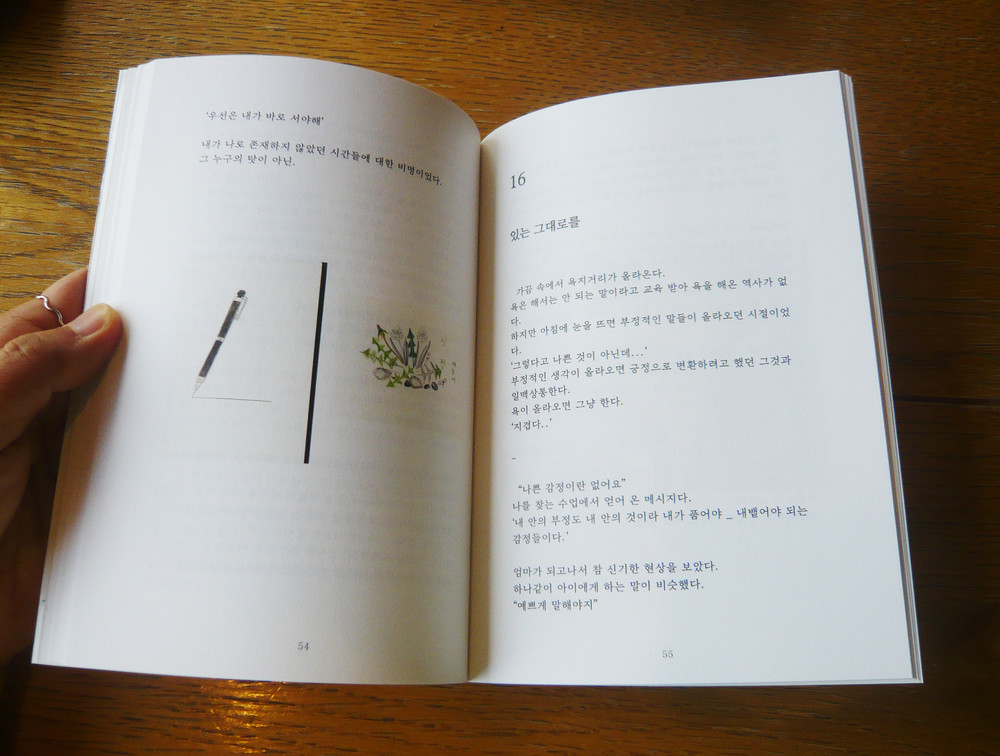 '우선은 내가 바로 서야해'
내가 나로 존재하지 않았던 시간들에 대한 비명이었다.
그 누구의 탓이 아닌.
54
16
있는 그대로를
가끔 속에서 욕지거리가 올라온다.
욕은 해서는 안 되는 말이라고 교육 받아 욕을 해온 역사가 없
다.
하지만 아침에 눈을 뜨면 부정적인 말들이 올라오던 시절이었
다.
'그렇다고 나쁜 것이 아닌데...'
부정적인 생각이 올라오면 긍정으로 변환하려고 했던 그것과
일맥상통한다.
욕이 올라오면 그냥 한다.
'지겹다..'
-
"나쁜 감정이란 없어요"
나를 찾는 수업에서 얻어 온 메시지다.
'내 안의 부정도 내 안의 것이라 내가 품어야 _ 내뱉어야 되는
감정들이다.'
엄마가 되고나서 참 신기한 현상을 보았다.
하나같이 아이에게 하는 말이 비슷했다.
"예쁘게 말해야지"
55